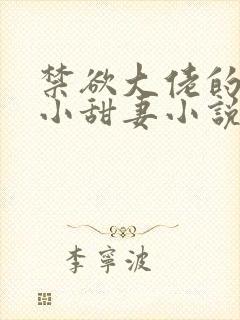 禁欲大佬的
小甜妻小説
李寧波